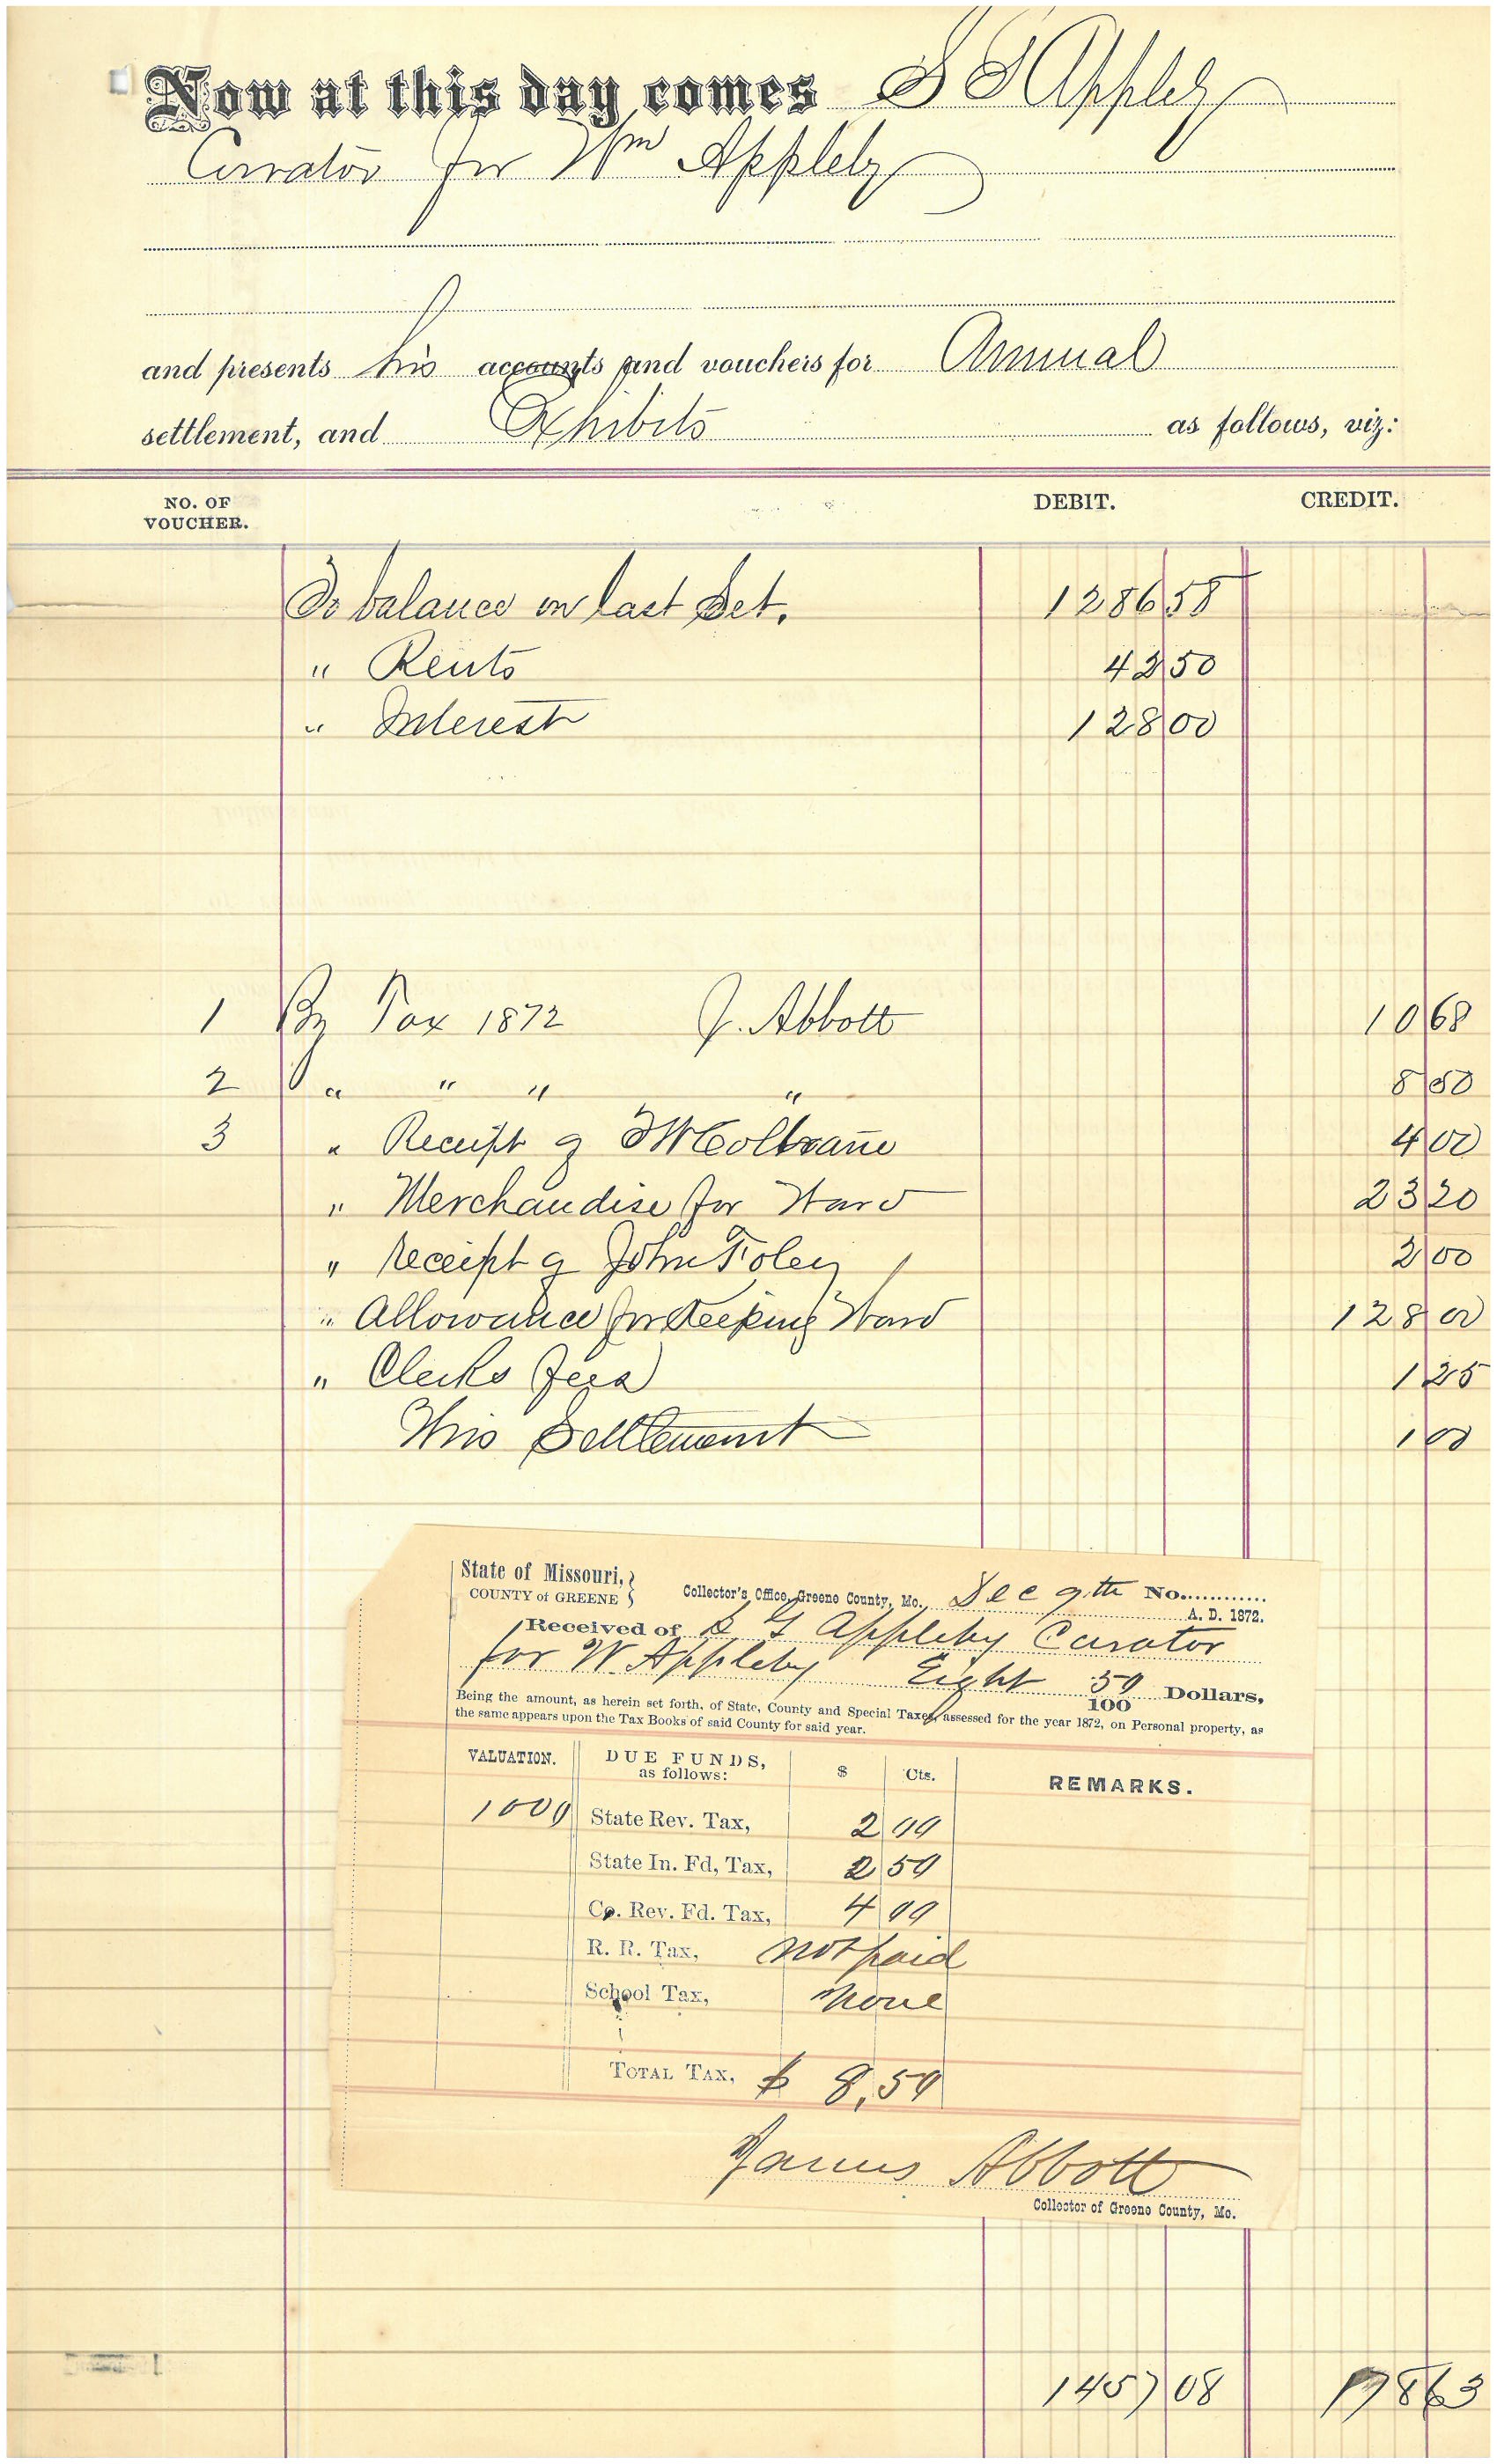 Now at this day comes S G Appleby
Curator for Wm Appleby
and presents his accounts and vouchers for Annual
settlement, and Exhibits as follows, viz:
NO. OF VOUCHER. DEBIT. CREDIT.
To balance on last Set. 1286 58
" Rents 42 50
" Interest 128 00
1 By Tax 1872 J. Abbott 10 68
2 " " " " 8 50
3 " Receipt of Coltrane 4 00
" Merchandise for Ward 23 20
" Receipt of John Foley 2 00
" Allowance for Keeping Ward 128 00
" Clerks fees 1 25
This Settlement 1 00
State of Missouri,
COUNTY of GREENE
Collector's Office, Greene County, Mo., Dec 9th No.
A. D. 1872.
Received of S G Appleby Curator
for W. Appleby Eight 50/100 Dollars,
Being the amount, as herein set forth, of State, County and Special Taxes, assessed for the year 1872, on Personal property, as
the same appears upon the Tax Books of said County for said year.
VALUATION. DUE FUNDS, as follows: $ Cts. REMARKS.
1000 State Rev. Tax, 2 00
State In. Fd, Tax, 2 50
Co. Rev. Fd. Tax, 4 00
R. R. Tax, not paid
School Tax, none
TOTAL TAX, $ 8,50
James Abbott
Collector of Greene County, Mo.
1457 08 178 63